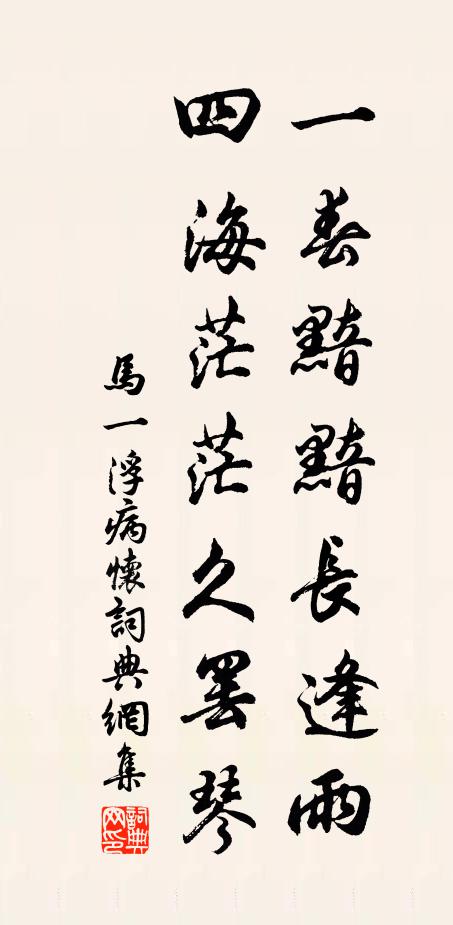 一春黯黯長逢雨
四海茫茫久罢琴
馬一浮病懷詞典網集
詞典網印